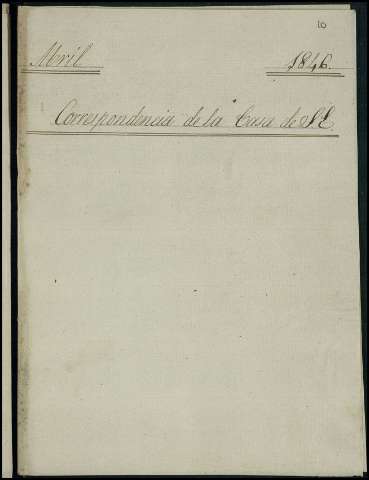 10
Abril 1846.
Correspondencia de la Casa de S.E.